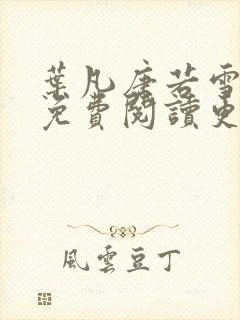 葉凡唐若雪
免費閱讀更
風雲豆丁